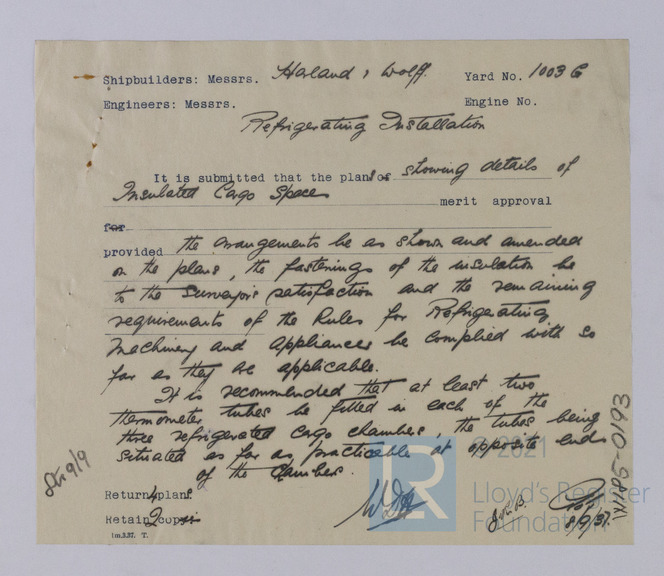 Shipbuilders: Messrs. Haland & Wolff. Yard No. 1003 G
Engineers: Messrs. Engine No.
Refrigerating Installation
It is submitted that the plans of showing details of
Insulated Cargo Spaces merit approval
for
provided the arrangements be as shown and amended
on the plans, the fastenings of the insulation be
to the Surveyor's satisfaction and the remaining
requirements of the Rules for Refrigerating
Machinery and Appliances be complied with so
far as they are applicable.
It is recommended that at least two
thermometer tubes be fitted in each of the
three refrigerated cargo chambers, the tubes being
situated as far as practicable at opposite ends
of the chambers.
Return 4 plans
Retain 2 copies
1m.3.37. T.
9/9
J.R.B.
8/9/37.
W185-0193
© 2021
LR
Lloyd's Register
Foundation